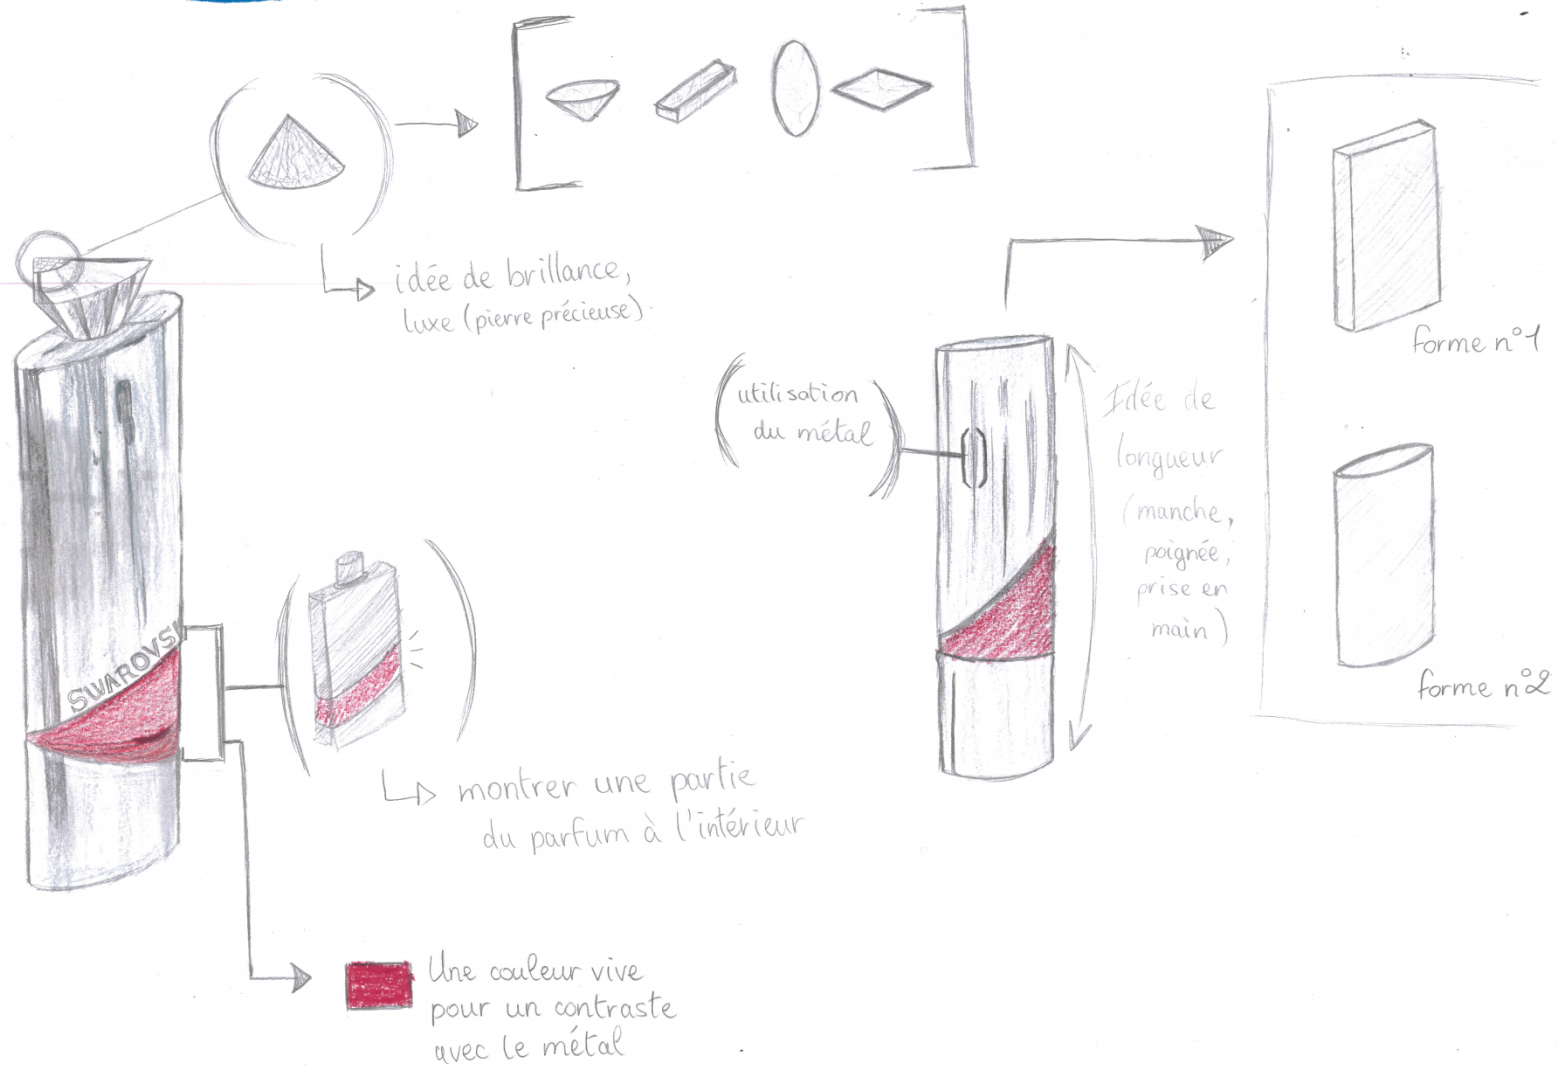 idée de brillance,
luxe (pierre précieuse).
SWAROVSKI
montrer une partie
du parfum à l'intérieur
Une couleur vive
pour un contraste
avec le métal
(utilisation
du métal)
Idée de
longueur
(manche,
poignée,
prise en
main)
forme n°1
forme n°2